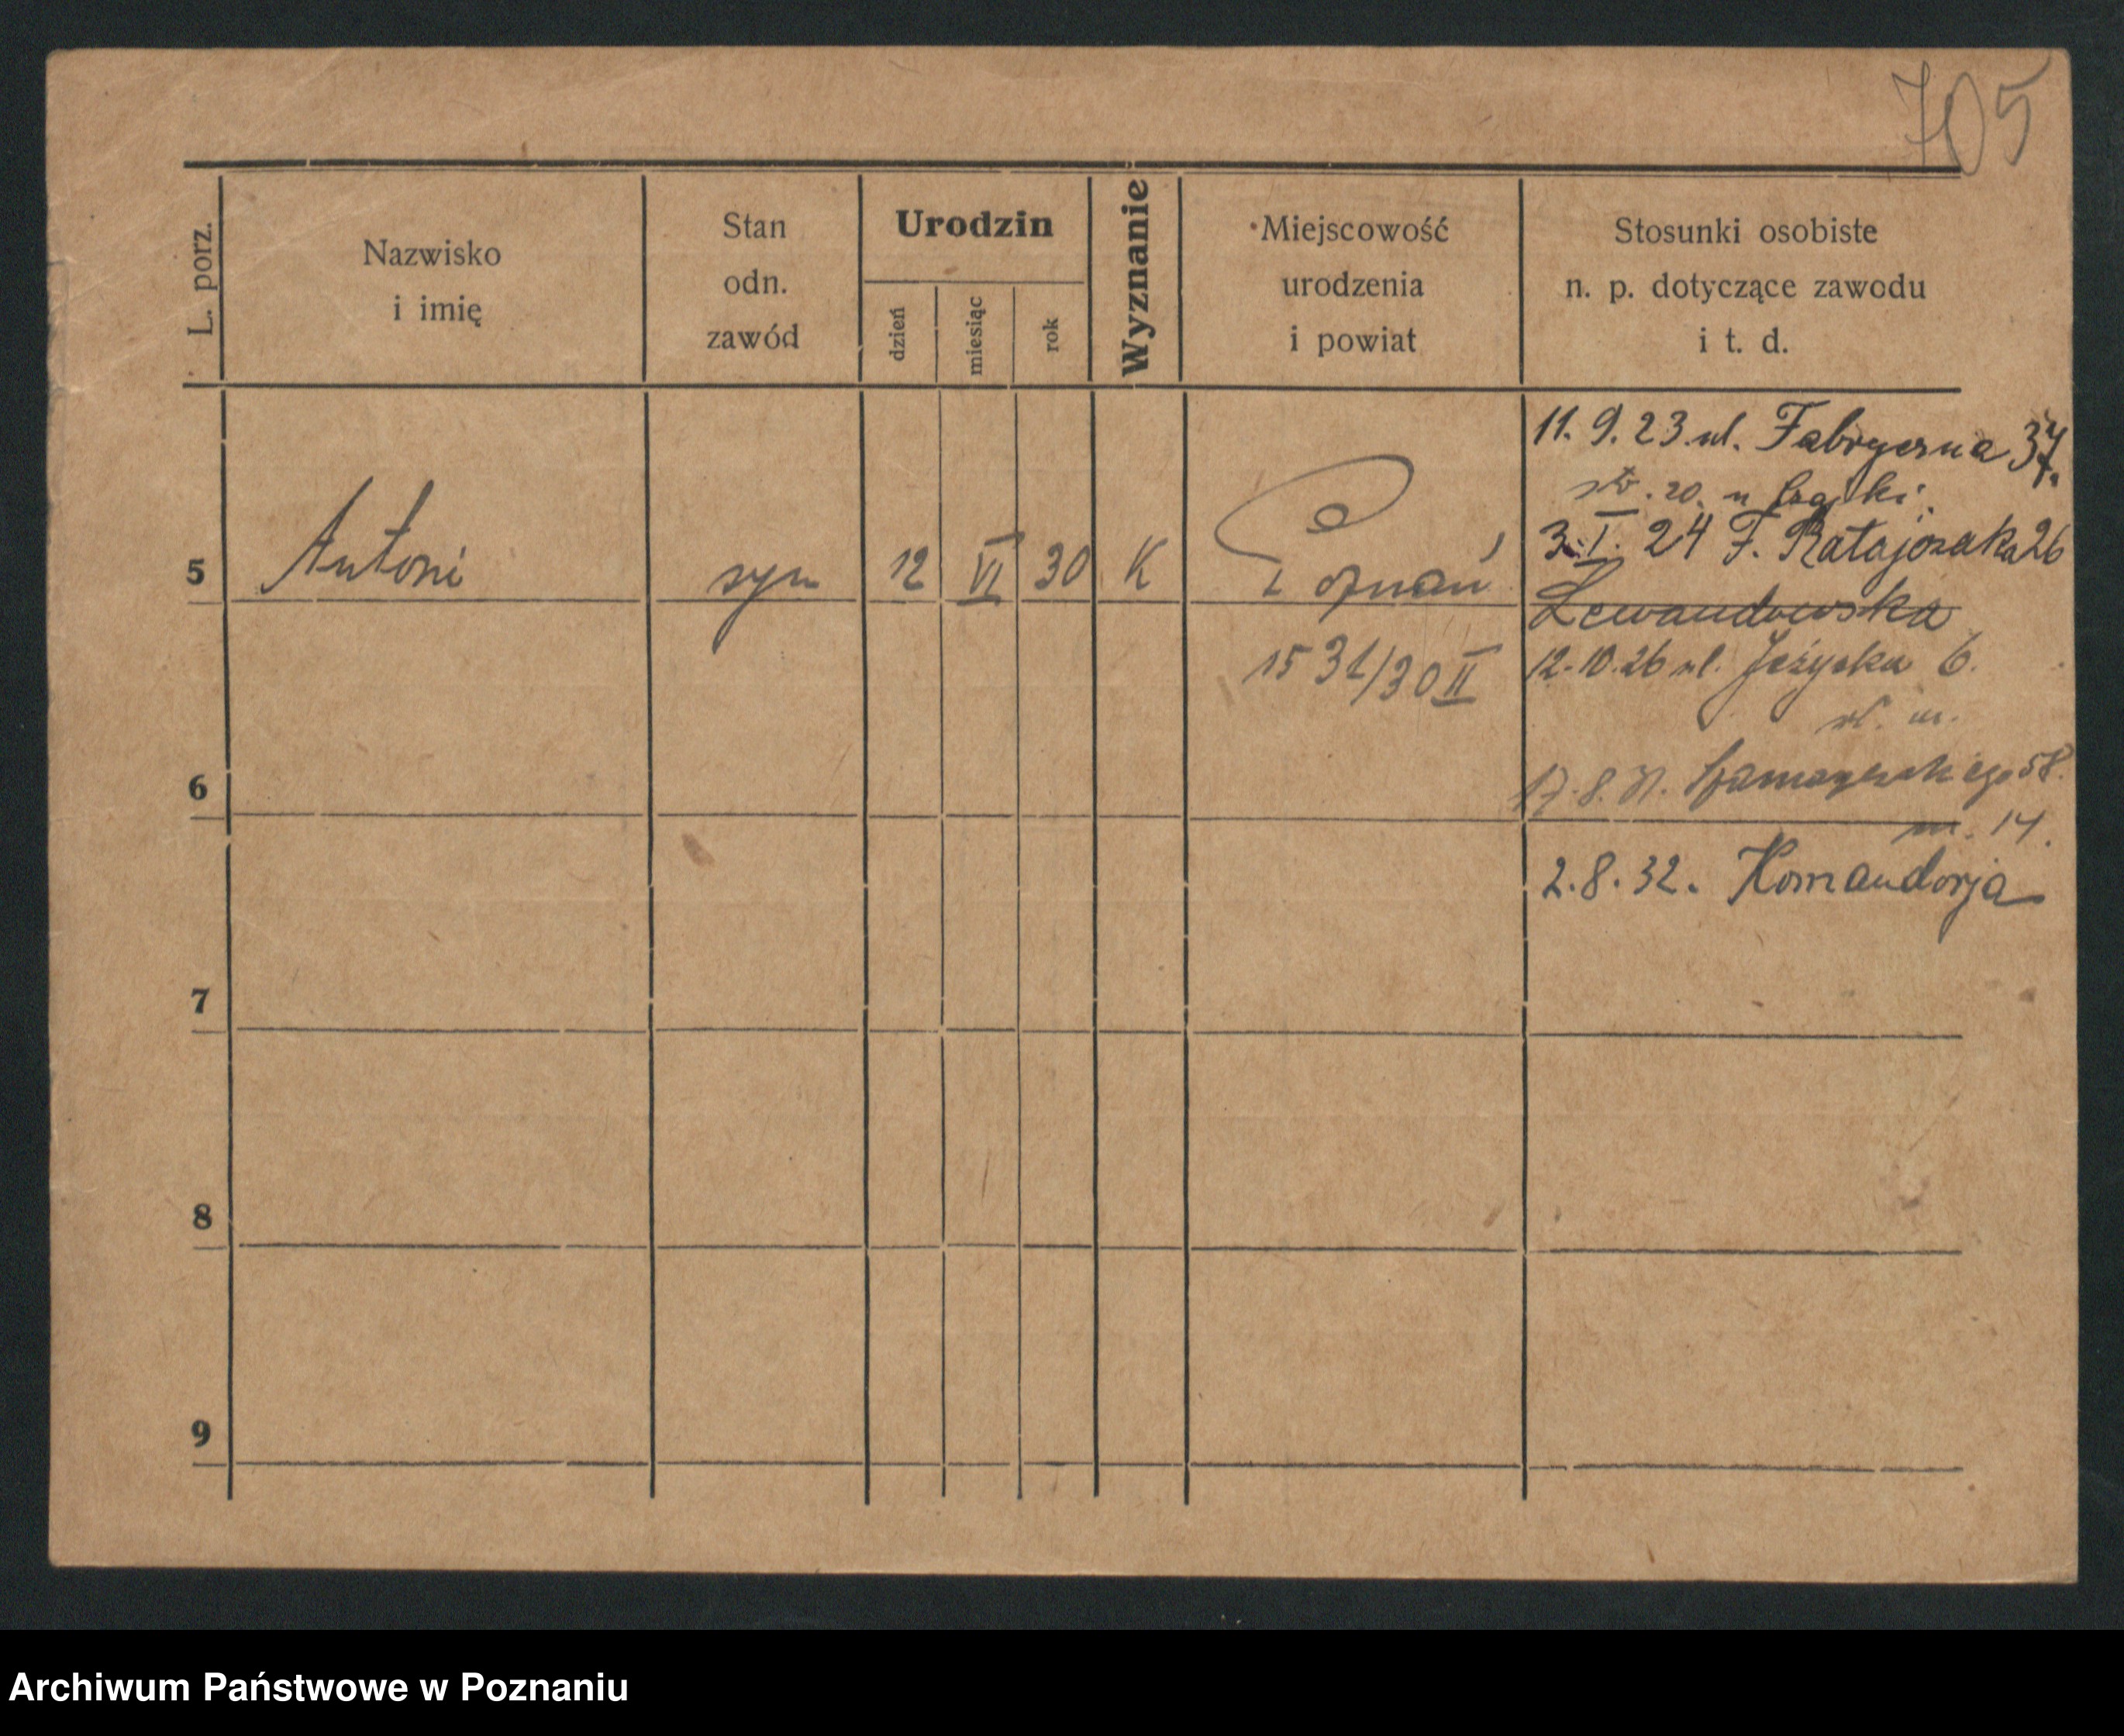 705
L. porz.
Nazwisko
i imię
Stan
odn.
zawód
Urodzin
dzień
miesiąc
rok
Wyznanie
Miejscowość
urodzenia
i powiat
Stosunki osobiste
n. p. dotyczące zawodu
i t. d.
5 Antoni syn 12 VI 30 K Poznań
1531/30 II
11. 9. 23 ul. Fabryczna 37.
3. I. 24 F. Ratajczaka 26
Lewandowska
12. 10. 26 ul. Jeżycka 6.
17. 8. 31. 58.
m. 14.
2. 8. 32. Komandorja
6
7
8
9
Archiwum Państwowe w Poznaniu